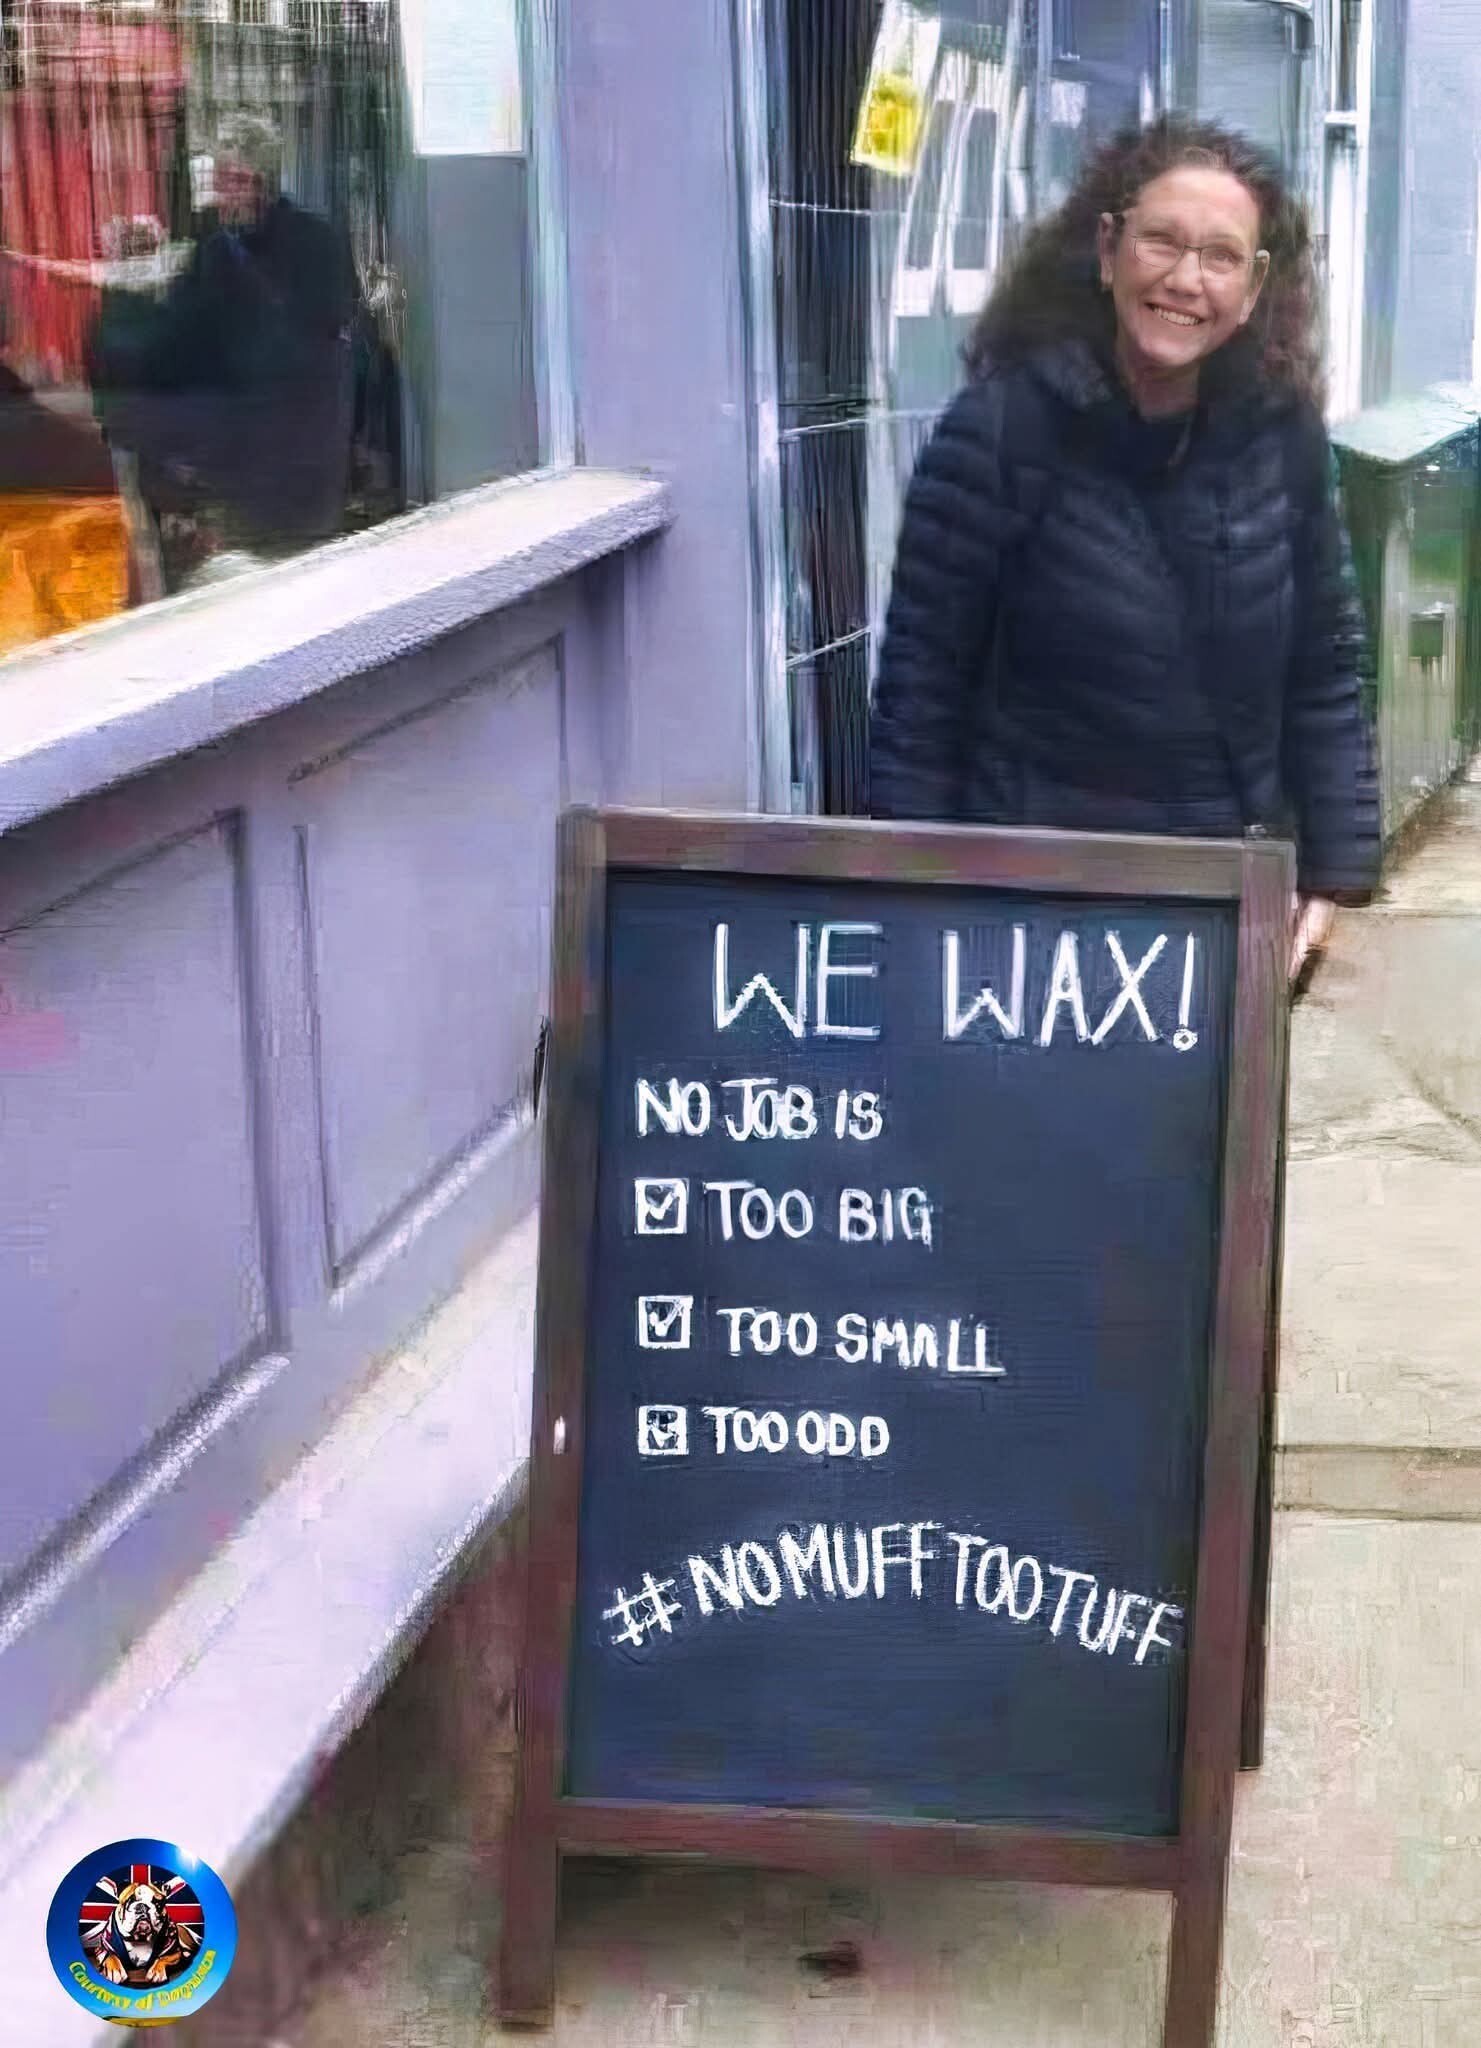 WE WAX!
NO JOB IS
☑ TOO BIG
☑ TOO SMALL
☑ TOO ODD
#NOMUFFTOOTUFF
Courtesy of